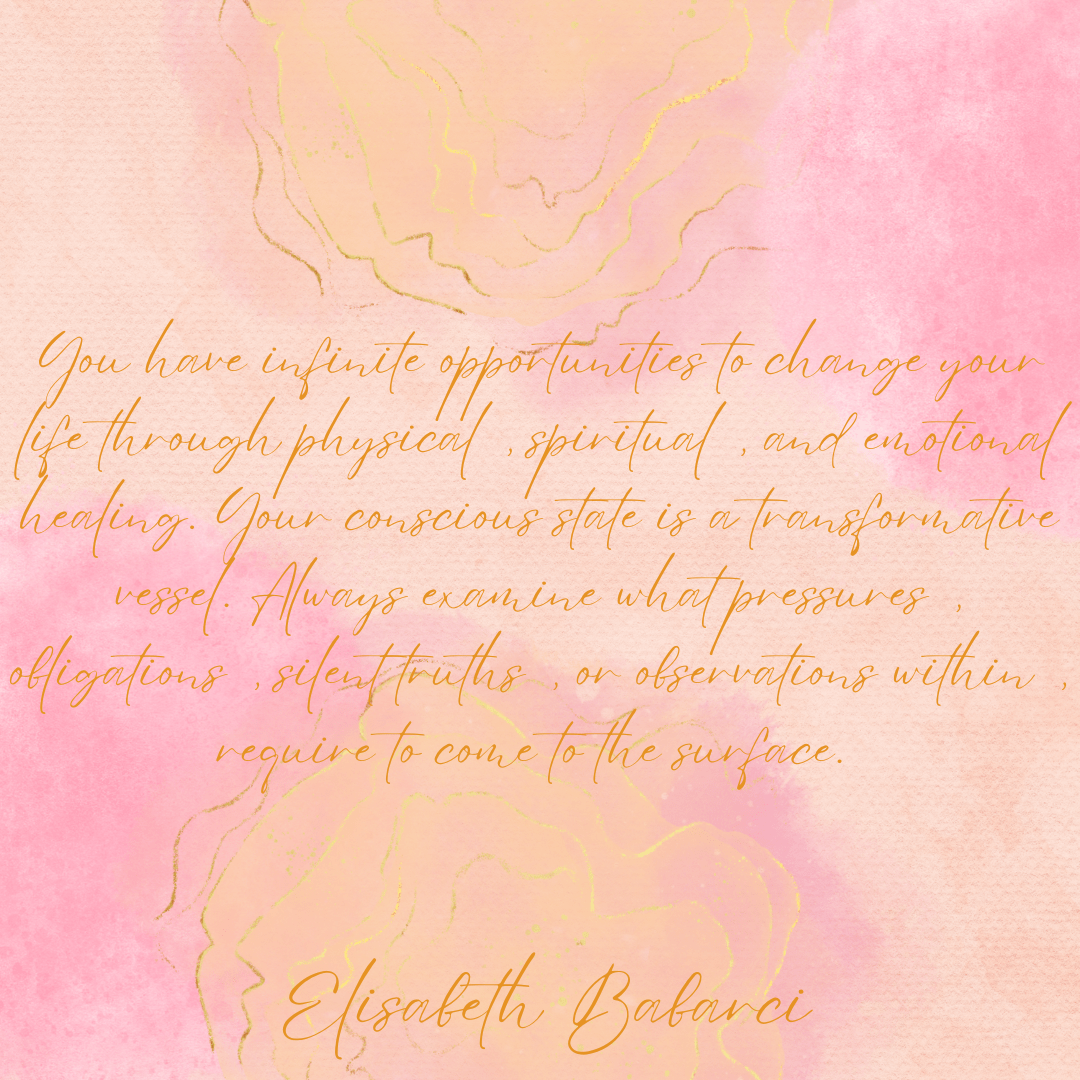 You have infinite opportunities to change your
life through physical , spiritual , and emotional
healing. Your conscious state is a transformative
vessel. Always examine what pressures ,
obligations , silent truths , or observations within ,
require to come to the surface.
Elisabeth Babarci